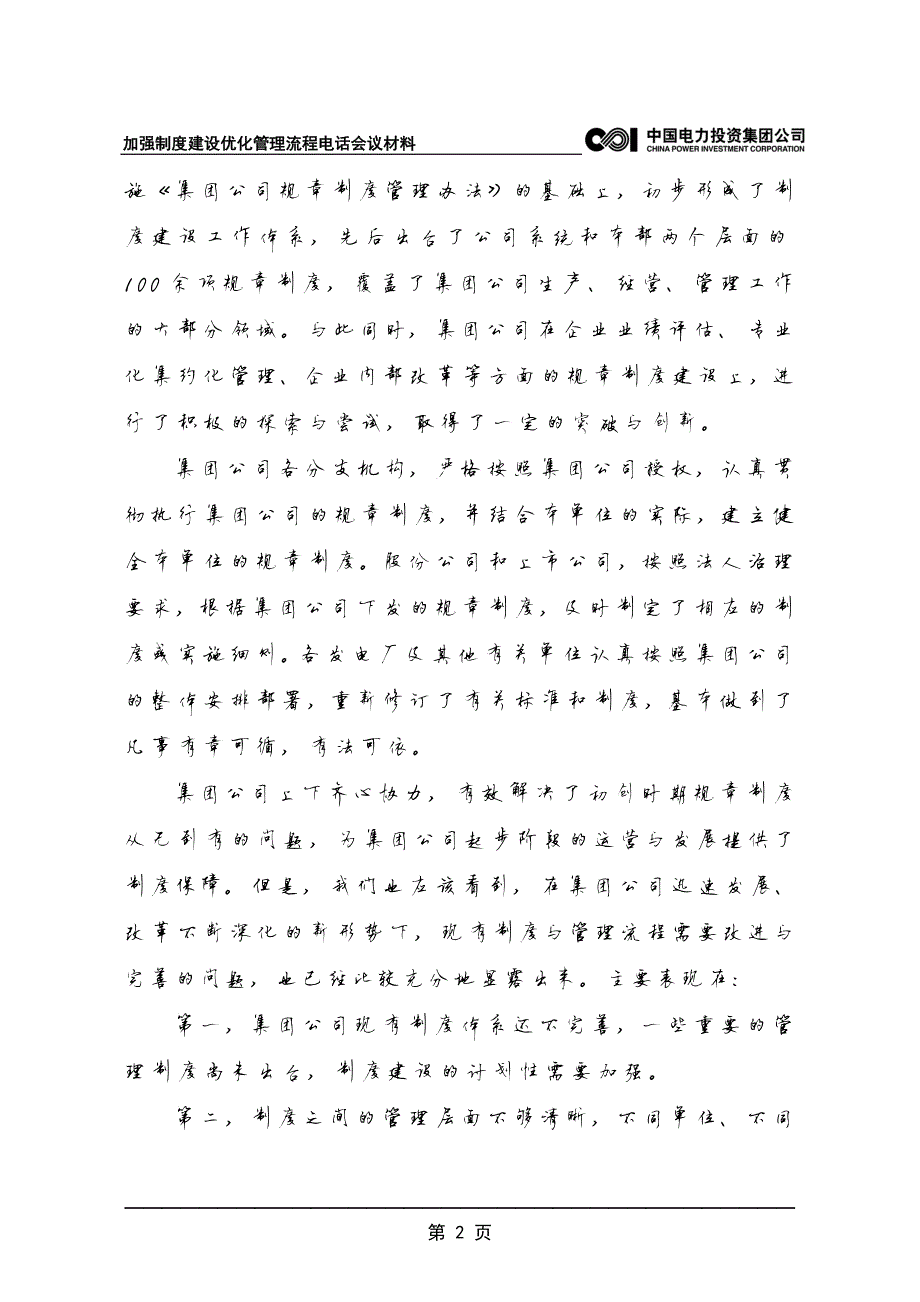 加强制度建设优化管理流程电话会议材料
中国电力投资集团公司
CHINA POWER INVESTMENT CORPORATION
施《集团公司规章制度管理办法》的基础上，初步形成了制
度建设工作体系，先后出台了公司系统和本部两个层面的
100余项规章制度，覆盖了集团公司生产、经营、管理工作
的大部分领域。与此同时，集团公司在企业业绩评估、专业
化集约化管理、企业内部改革等方面的规章制度建设上，进
行了积极的探索与尝试，取得了一定的突破与创新。
集团公司各分支机构，严格按照集团公司授权，认真贯
彻执行集团公司的规章制度，并结合本单位的实际，建立健
全本单位的规章制度。股份公司和上市公司，按照法人治理
要求，根据集团公司下发的规章制度，及时制定了相应的制
度或实施细则。各发电厂及其他有关单位认真按照集团公司
的整体安排部署，重新修订了有关标准和制度，基本做到了
凡事有章可循，有法可依。
集团公司上下齐心协力，有效解决了初创时期规章制度
从无到有的问题，为集团公司起步阶段的运营与发展提供了
制度保障。但是，我们也应该看到，在集团公司迅速发展、
改革不断深化的新形势下，现有制度与管理流程需要改进与
完善的问题，也已经比较充分地显露出来。主要表现在：
第一，集团公司现有制度体系还不完善，一些重要的管
理制度尚未出台，制度建设的计划性需要加强。
第二，制度之间的管理层面不够清晰，不同单位、不同
第 2 页